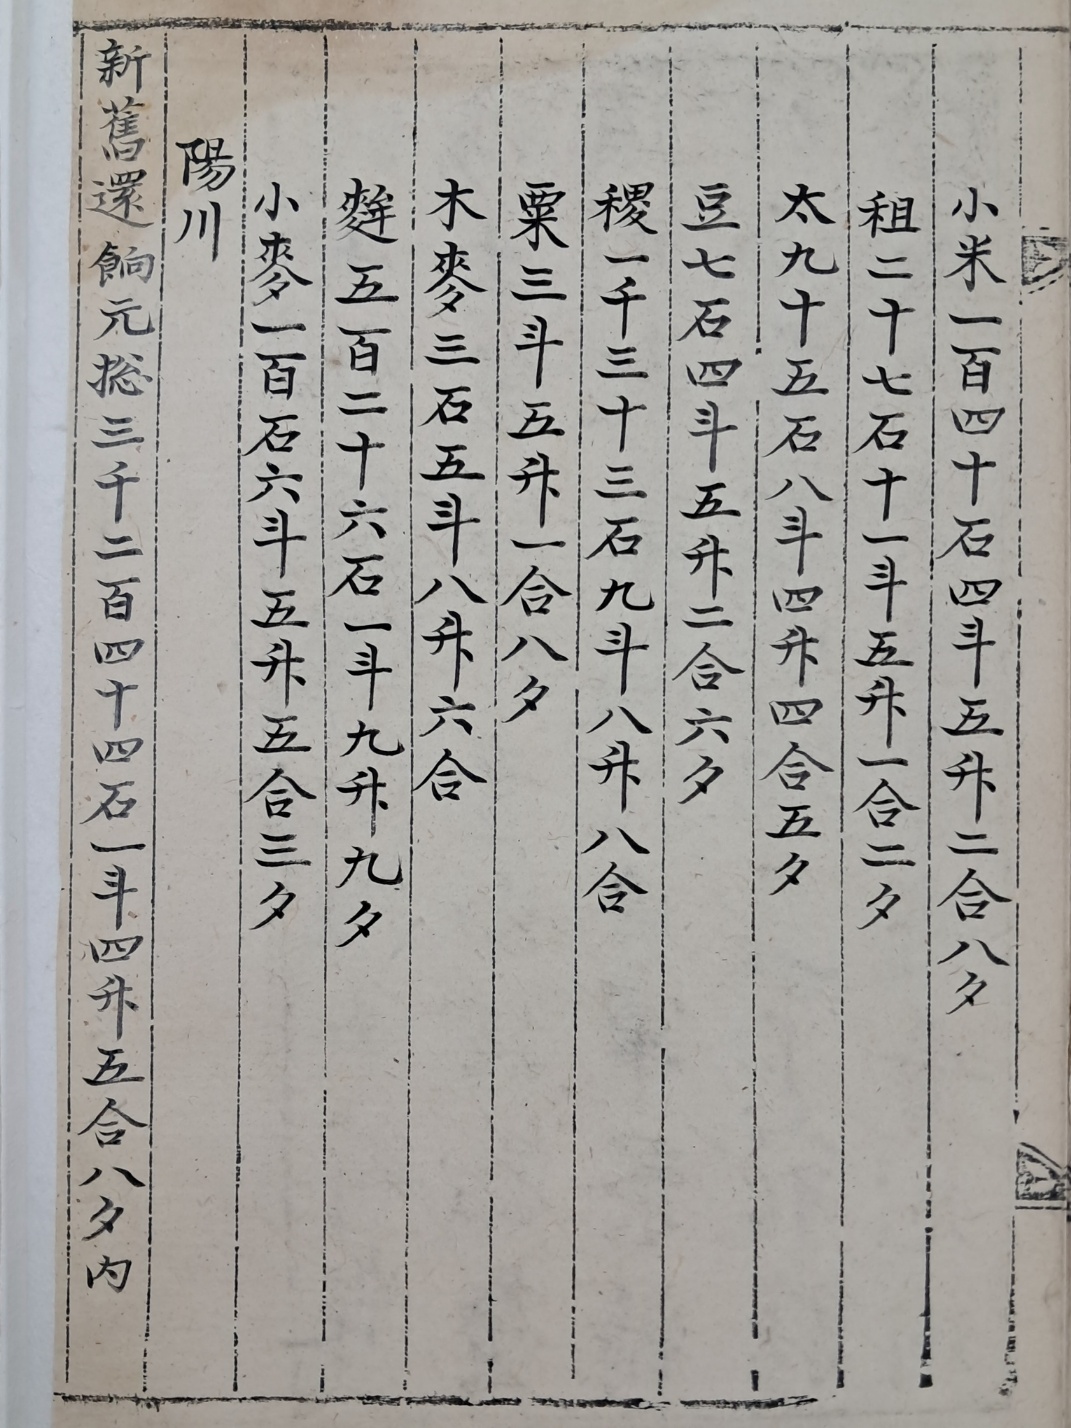 小米一百四十石四斗五升二合八夕
租二十七石十一斗五升一合二夕
太九十五石八斗四升四合五夕
豆七石四斗五升二合六夕
稷一千三十三石九斗八升八合
粟三斗五升一合八夕
木麥三石五斗八升六合
麰五百二十六石一斗九升九夕
小麥一百石六斗五升五合三夕
陽川
新舊還餉元摠三千二百四十四石一斗四升五合八夕內